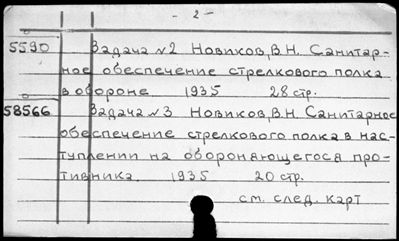 - 2 -
5590 Задача №2 Новиков, В.Н. Санитар-
ное обеспечение стрелкового полка
в обороне 1935 28 стр.
58566 Задача №3 Новиков, В.Н. Санитарное
обеспечение стрелкового полка в нас-
туплении на обороняющегося про-
тивника. 1935 20 стр.
см. след. карт